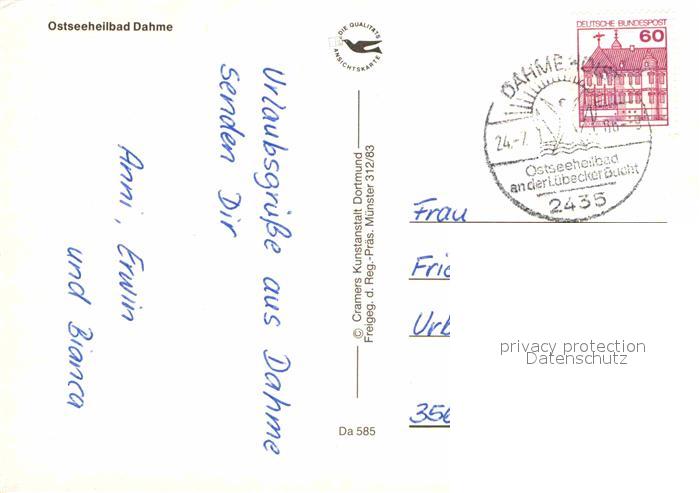 Ostseeheilbad Dahme
DIE QUALITÄTS
ANSICHTSKARTE
DEUTSCHE BUNDESPOST
60
DAHME
24.-7.
Ostseeheilbad
an der Lübecker Bucht
2435
Urlaubsgrüße aus Dahme
senden Dir
Anni, Erwin
und Bianca
© Cramers Kunstanstalt Dortmund
Freigeg. d. Reg.-Präs. Münster 312/83
Da 585
Frau
Fric
Urb
356
privacy protection
Datenschutz